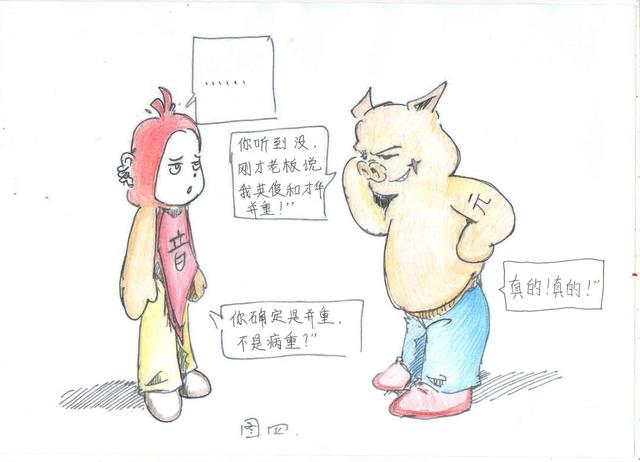 ……
你听到没,
刚才老板说
我英俊和才华
并重!"
音
元
真的!真的!"
你确定是并重,
不是病重?"
图四.